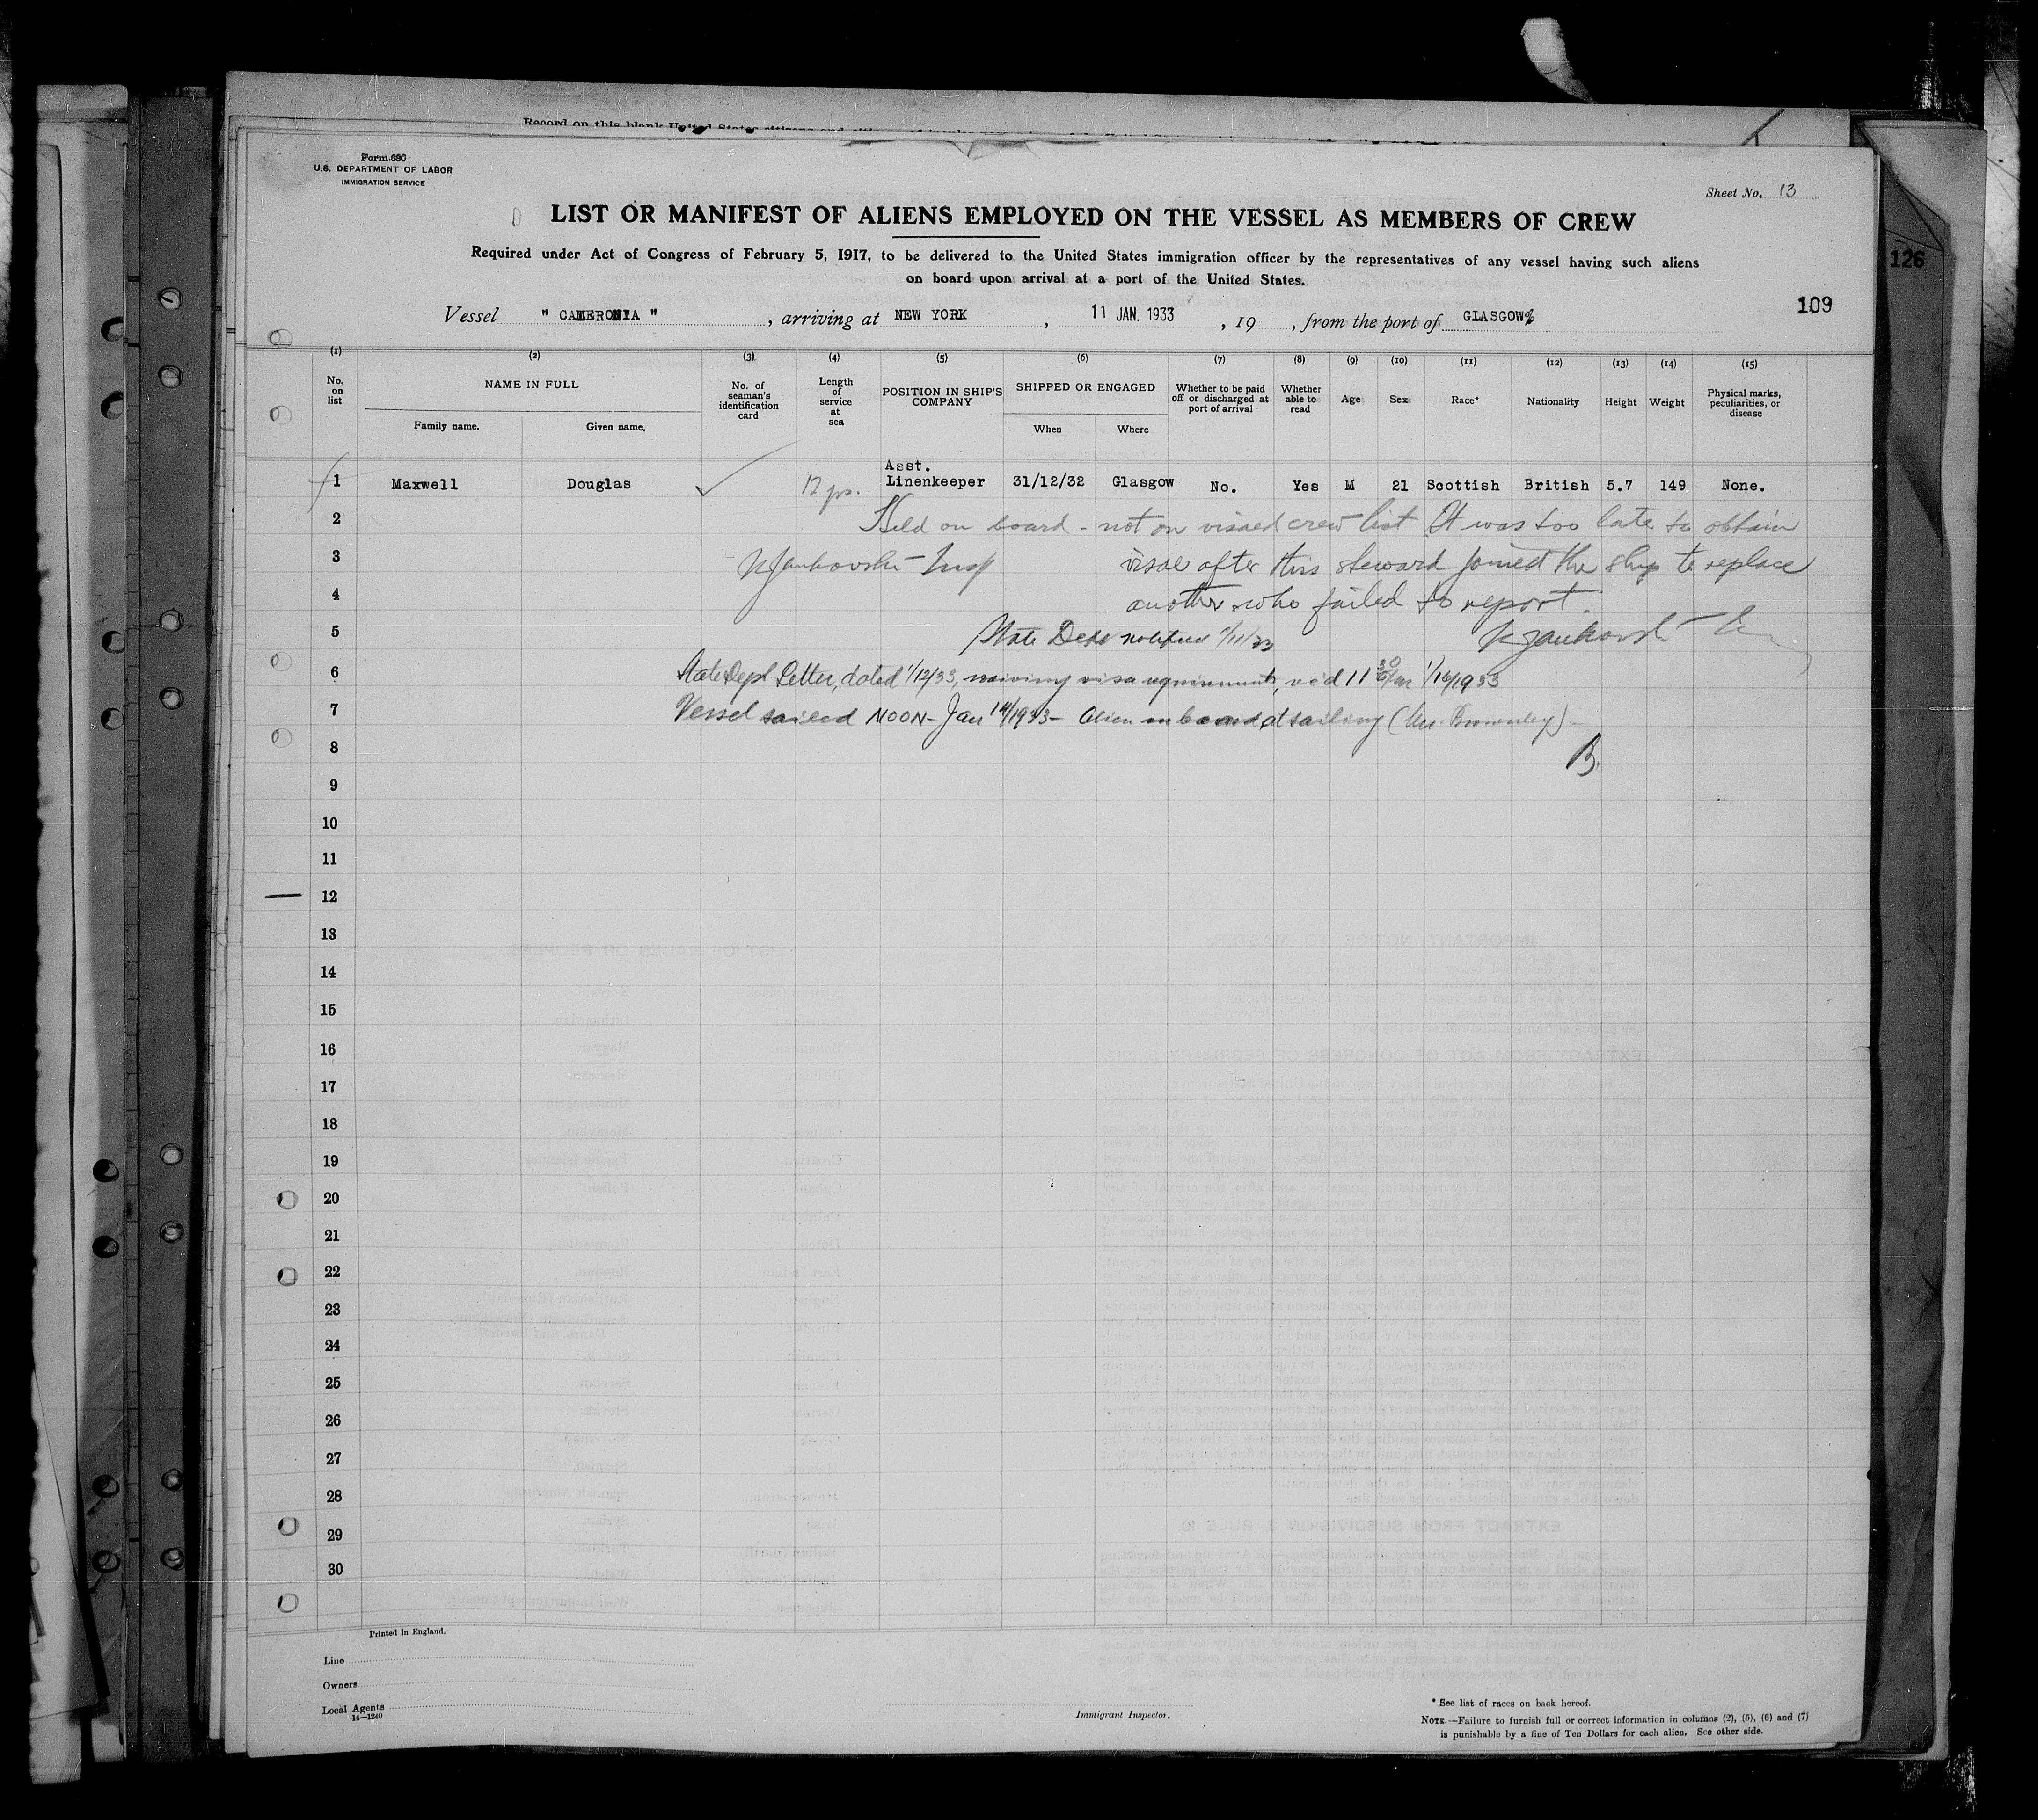 Record on this blank United States citizens and citizens of
Form 680
U.S. DEPARTMENT OF LABOR
IMMIGRATION SERVICE
Sheet No. 13
LIST OR MANIFEST OF ALIENS EMPLOYED ON THE VESSEL AS MEMBERS OF CREW
Required under Act of Congress of February 5, 1917, to be delivered to the United States immigration officer by the representatives of any vessel having such aliens
on board upon arrival at a port of the United States.
126
109
Vessel " CAMERONIA " , arriving at NEW YORK , 11 JAN. 1933 , 19 , from the port of GLASGOW
(1) (2) (3) (4) (5) (6) (7) (8) (9) (10) (11) (12) (13) (14) (15)
No. on list NAME IN FULL Family name. Given name. No. of seaman's identification card Length of service at sea POSITION IN SHIP'S COMPANY SHIPPED OR ENGAGED When Where Whether to be paid off or discharged at port of arrival Whether able to read Age Sex Race* Nationality Height Weight Physical marks, peculiarities, or disease
1 Maxwell Douglas 12 yrs. Asst. Linenkeeper 31/12/32 Glasgow No. Yes M 21 Scottish British 5.7 149 None.
2 Held on board - not on visaed crew list It was too late to obtain
3 Insp visae after this steward joined the ship to replace
4 another who failed to report.
5 State Dept notified 1/11/33
6 State Dept Letter, dated 1/12/33, waiving visa requirements, rec'd 11 30 am
7 Vessel sailed NOON - Jan 14/1933 - Alien on board at sailing (Mr. Brownley) -
8 B.
9
10
11
12
13
14
15
16
17
18
19
20
21
22
23
24
25
26
27
28
29
30
Printed in England.
Line
Owners
Local Agents
14—1240
Immigrant Inspector.
* See list of races on back hereof.
NOTE.—Failure to furnish full or correct information in columns (2), (5), (6) and (7)
is punishable by a fine of Ten Dollars for each alien. See other side.